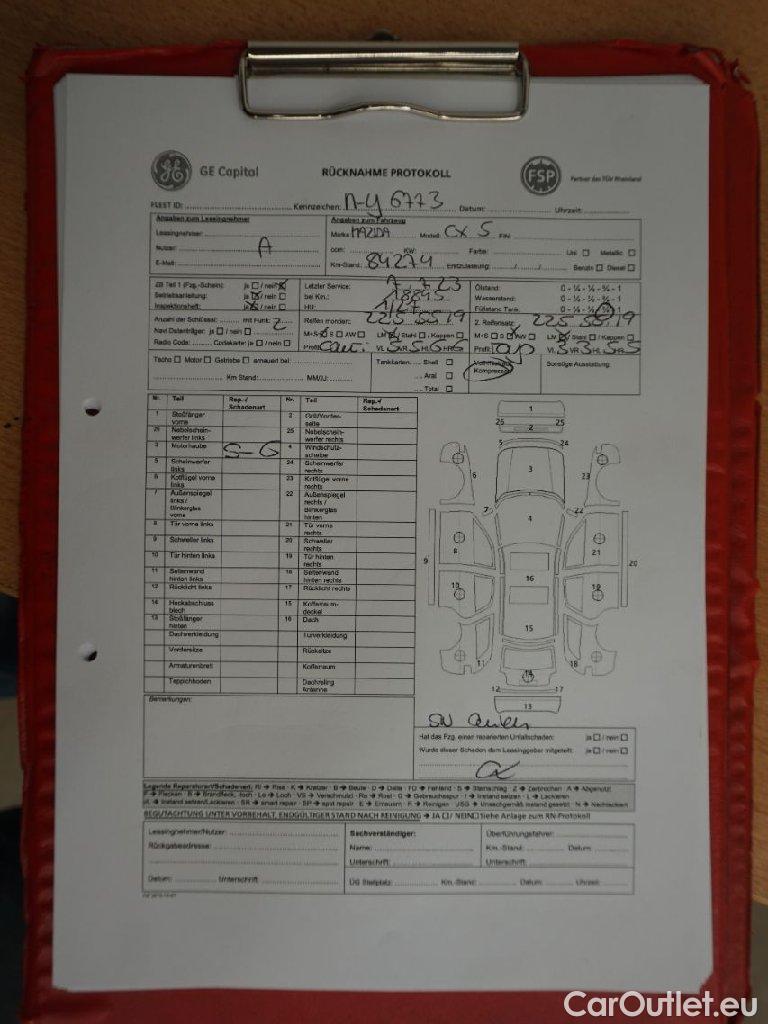 GE Capital
RÜCKNAHME PROTOKOLL
FSP
Partner des TÜV Rheinland
FLEET ID:
Kennzeichen: N-Y 6773
Datum:
Uhrzeit:
Angaben zum Leasingnehmer
Leasingnehmer:
Nutzer: A
E-Mail:
Angaben zum Fahrzeug
Marke MAZDA Model: CX 5 FIN
KW: Farbe: Uni Metallic
Km-Stand: 84274 Erstzulassung: Benzin Diesel
ZB Teil 1 (Fzg.-Schein): ja / nein
Betriebsanleitung: ja / nein
Inspektionsheft: ja / nein
Letzter Service: 7.7.23
bei Km.: 18845
HU:
Ölstand: 0 - ¼ - ½ - ¾ - 1
Wasserstand: 0 - ¼ - ½ - ¾ - 1
Füllstand Tank: 0 - ¼ - ½ - ¾ - 1
Anzahl der Schlüssel: mit Funk: 2
Navi Datenträger: ja / nein
Radio Code: Codekarte: ja / nein
Reifen montiert: 225.55.19
M+S S AW LM Stahl / Kappen
Profil: Conti VL 5 VR 5 HL 5 HR 5
2. Reifensatz: 225.55.19
M+S S AW LM Stahl / Kappen
Profil: VL 5 VR 5 HL 5 HR 5
Tacho Motor Getriebe erneuert bei:
Km Stand: MM/J:
Tankkarten: Shell
Aral
Total
Kompressor
Sonstige Ausstattung:
Nr. Teil Rep.-/ Schadenart Nr. Teil Rep.-/ Schadenart
1 Stoßfänger vorne 2
25 Nebelscheinwerfer links 25 Nebelscheinwerfer rechts
3 Motorhaube S-G 4 Windschutzscheibe
5 Scheinwerfer links 24 Scheinwerfer rechts
6 Kotflügel vorne links 23 Kotflügel vorne rechts
7 Außenspiegel links / Blinkerglas vorne 22 Außenspiegel rechts / Blinkerglas hinten
8 Tür vorne links 21 Tür vorne rechts
9 Schweller links 20 Schweller rechts
10 Tür hinten links 19 Tür hinten rechts
11 Seitenwand hinten links 18 Seitenwand hinten rechts
12 Rücklicht links 17 Rücklicht rechts
14 Heckabschlussblech 15 Kofferraumdeckel
13 Stoßfänger hinten 16 Dach
Dachverkleidung Türverkleidung
Vordersitze Rücksitze
Armaturenbrett Kofferraum
Teppichboden Dachreling Antenne
1
25 25
2
5 24
3
6 23
7 22
4
8 21
9 20
16
10 19
15
11 18
14
12 17
13
Bemerkungen:
Hat das Fzg. einen reparierten Unfallschaden: ja / nein
Wurde dieser Schaden dem Leasinggeber mitgeteilt: ja / nein
Legende Reparaturen/Schadenart:
BEGUTACHTUNG UNTER VORBEHALT, ENDGÜLTIGER STAND NACH REINIGUNG → JA / NEIN Siehe Anlage zum RN-Protokoll
Leasingnehmer/Nutzer:
Rückgabeadresse:
Datum: Unterschrift:
Sachverständiger:
Name:
Unterschrift:
Überführungsfahrer:
Km.-Stand: Datum
Unterschrift:
ÜG Stellplatz: Km.-Stand: Datum: Uhrzeit:
CarOutlet.eu